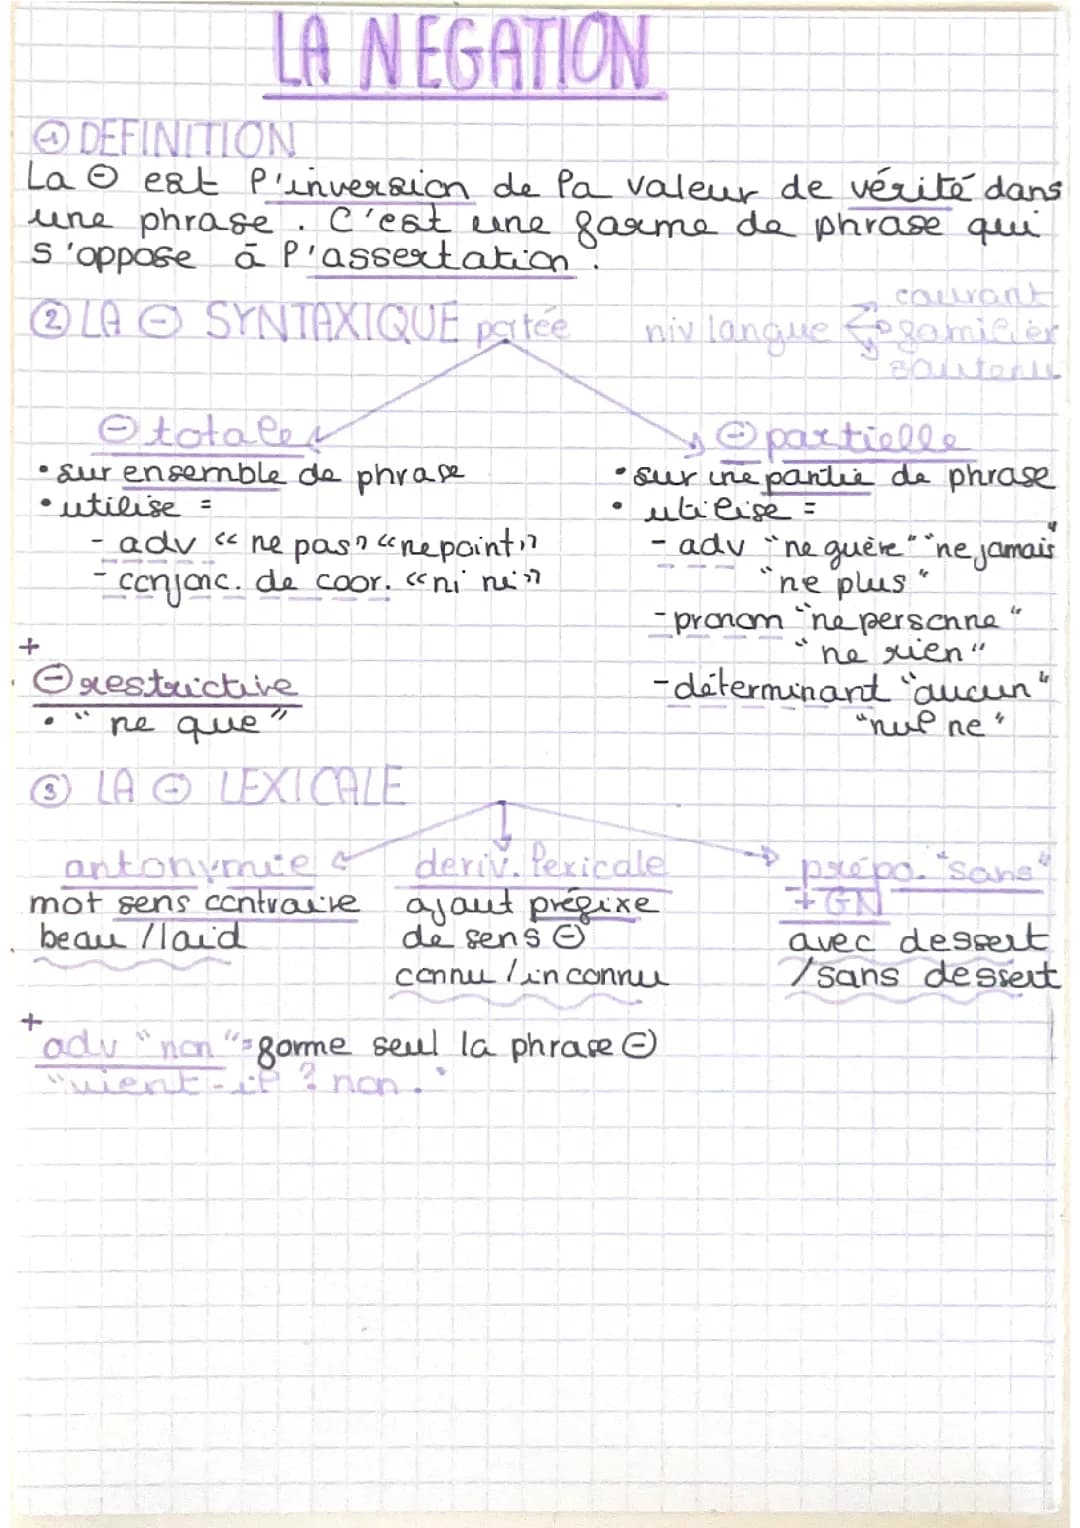 LA NEGATION
① DEFINITION
La ⊖ est l'inversion de la valeur de vérité dans
une phrase. C'est une forme de phrase qui
s'oppose à l'assertation.
② LA ⊖ SYNTAXIQUE patée
niv langue
courant
familier
soutenu
⊖ totale
• sur ensemble de phrase
• utilise =
- adv «ne pas» «ne point»
- conjonc. de coor. «ni ni»
⊖ partielle
• sur une partie de phrase
• utilise =
- adv "ne guère" "ne jamais"
"ne plus"
- pronom "ne personne"
"ne rien"
- déterminant "aucun"
"nul ne"
+
⊖ restrictive
• "ne que"
③ LA ⊖ LEXICALE
antonymie
mot sens contraire
beau / laid
deriv. lexicale
ajout préfixe
de sens ⊖
connu / inconnu
prépo. "sans"
+ GN
avec dessert
/ sans dessert
+
adv "non" = forme seul la phrase ⊖
"vient-il ? non."